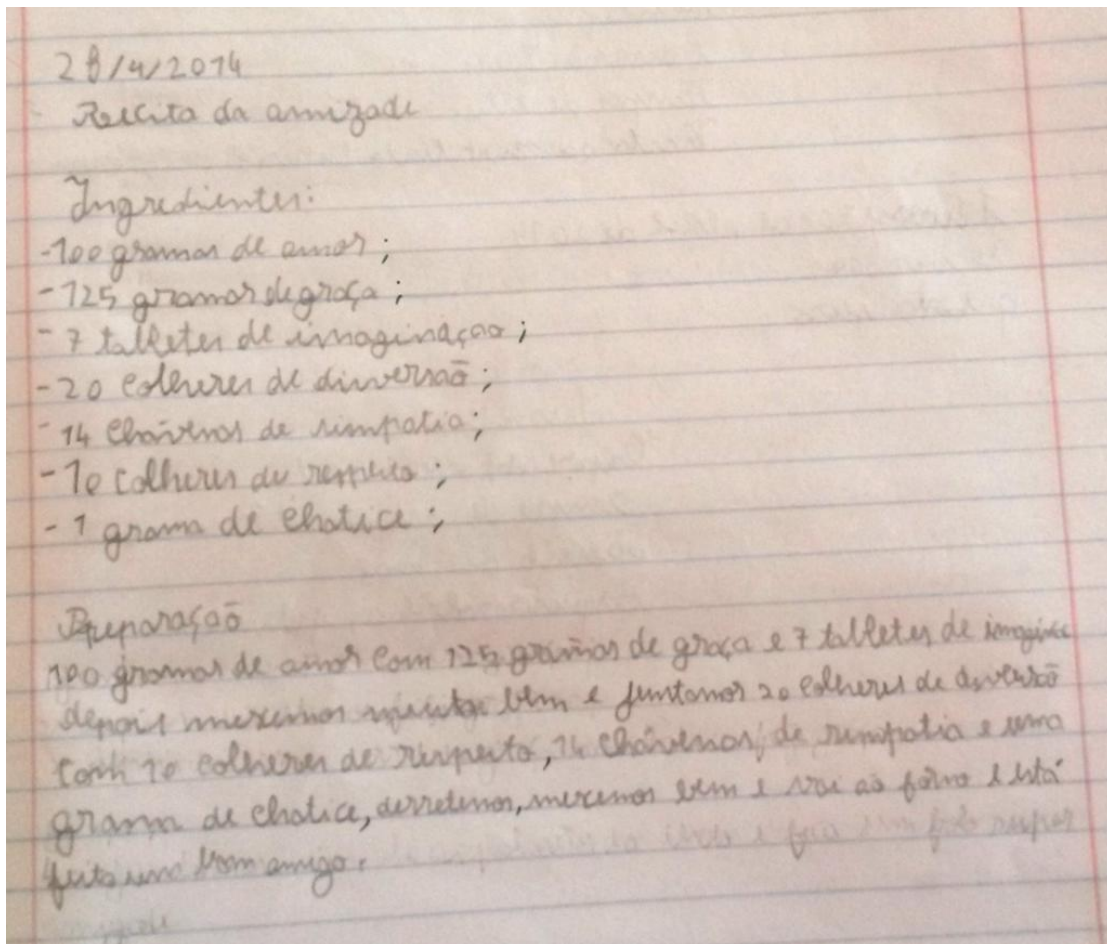 28/4/2014
Receita da amizade
Ingredientes:
-100 gramas de amor;
-125 gramas de graça;
-7 talletes de imaginaçao;
-20 colheres de diversão;
-14 chávenas de simpatia;
-10 colheres de respeito;
-1 grama de chatice;
Preparação
100 gramas de amor com 125 gramas de graça e 7 talletes de
depois mexemos bem e juntamos 20 colheres de diversão
com 10 colheres de respeito, 14 chávenas, de simpatia e uma
grama de chatice, derretemos, mexemos bem e vai ao forno e está
feito um bom amigo.